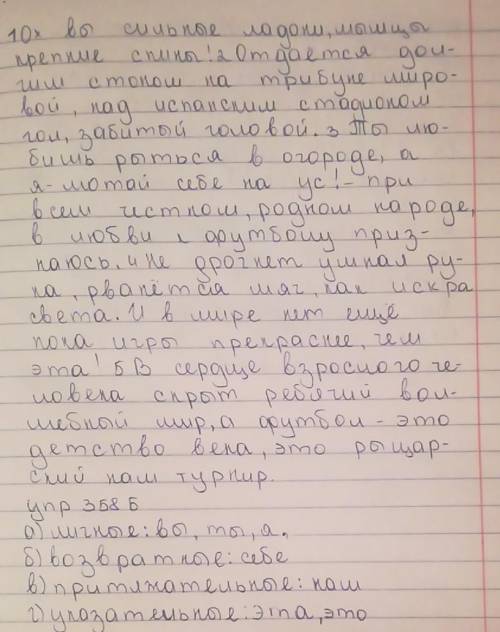 10х вы сильные ладони, мышцы
крепкие спины! 2 Отдается дол-
гим стоном на трибуне миро-
вой, над испанским стадионом
гол, забитый головой. 3 Ты лю-
бишь рыться в огороде, а
я- мотай себе на ус! - при
всем честном, родном народе,
в любви к футболу приз-
наюсь. 4 Не дрогнет умная ру-
ка, рванётся мяч, как искра
света. И в мире нет ещё
пока игры прекрасне, чем
эта! 5 В сердце взрослого че-
ловека скрыт ребячий вол-
шебный мир, а футбол - это
детство века, это рыцар-
ский наш турнир.
упр 358 б
а) личные: вы, ты, я,
б) возвратные: себе
в) притяжательные: наш
г) указательные: эта, это